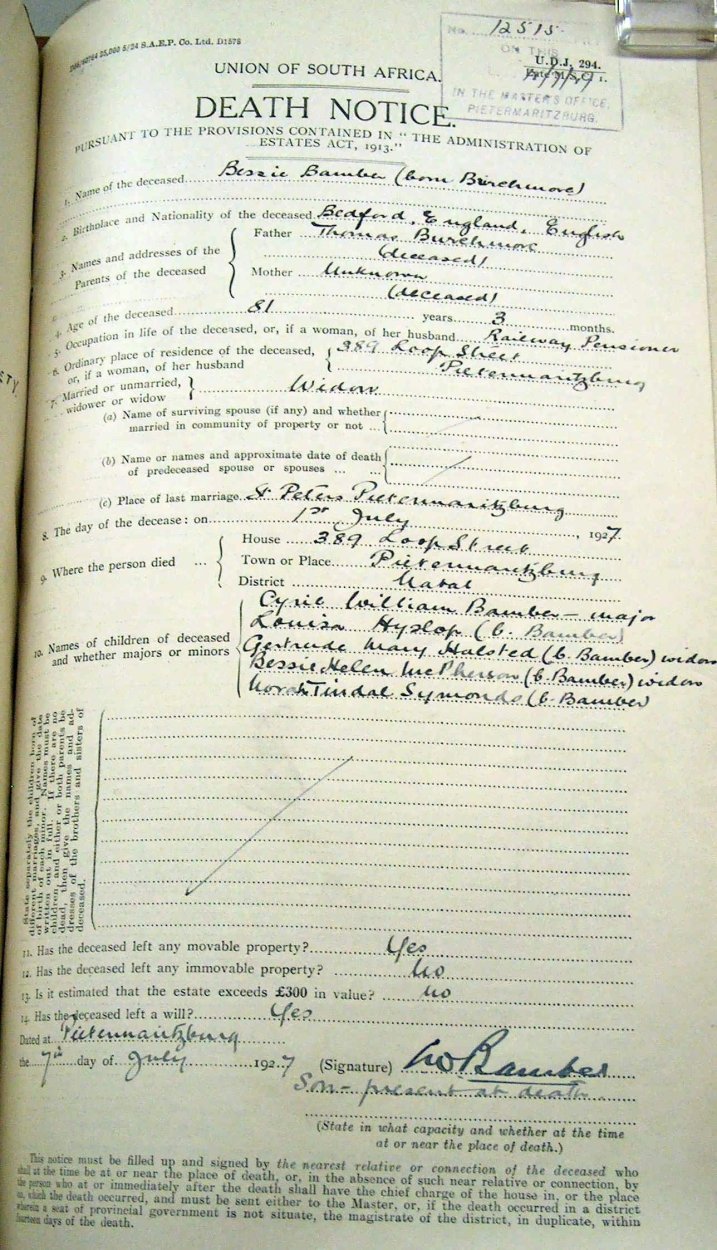 5/24 S.A.E.P. Co. Ltd. D1578
No. 12515
ON THIS
U.D.J. 294.
IN THE MASTER'S OFFICE,
PIETERMARITZBURG.
UNION OF SOUTH AFRICA.
DEATH NOTICE.
PURSUANT TO THE PROVISIONS CONTAINED IN "THE ADMINISTRATION OF
ESTATES ACT, 1913."
1. Name of the deceased Bessie Bamber (born Burchmore)
2. Birthplace and Nationality of the deceased Bedford, England, English
3. Names and addresses of the Parents of the deceased
Father Thomas Burchmore
(deceased)
Mother Unknown
(deceased)
4. Age of the deceased 81 years 3 months.
5. Occupation in life of the deceased, or, if a woman, of her husband Railway Pensioner
6. Ordinary place of residence of the deceased, 389 Loop Street
or, if a woman, of her husband Pietermaritzburg
7. Married or unmarried, widower or widow Widow
(a) Name of surviving spouse (if any) and whether
married in community of property or not ...
(b) Name or names and approximate date of death
of predeceased spouse or spouses ... ...
(c) Place of last marriage St Peters Pietermaritzburg
8. The day of the decease: on 1st July, 1927.
9. Where the person died ...
House 389 Loop Street
Town or Place Pietermaritzburg
District Natal
10. Names of children of deceased
and whether majors or minors
Cyril William Bamber - major
Louisa Hyslop (b. Bamber)
Gertrude Mary Halsted (b. Bamber) widow
Bessie Helen McPherson (b. Bamber) widow
Norah Tindal Symonds (b. Bamber)
State separately the children born of
different marriages, and give the date
of birth of each minor. Names must be
written out in full. If there are no
children, and either or both parents be
dead, then give the names and ad-
dresses of the brothers and sisters of
deceased.
11. Has the deceased left any movable property? Yes
12. Has the deceased left any immovable property? No
13. Is it estimated that the estate exceeds £300 in value? No
14. Has the deceased left a will? Yes
Dated at Pietermaritzburg
the 7th day of July 1927 (Signature) Bamber
Son - present at death.
(State in what capacity and whether at the time
at or near the place of death.)
This notice must be filled up and signed by the nearest relative or connection of the deceased who
shall at the time be at or near the place of death, or, in the absence of such near relative or connection, by
the person who at or immediately after the death shall have the chief charge of the house in, or the place
on, which the death occurred, and must be sent either to the Master, or, if the death occurred in a district
wherein a seat of provincial government is not situate, the magistrate of the district, in duplicate, within
fourteen days of the death.